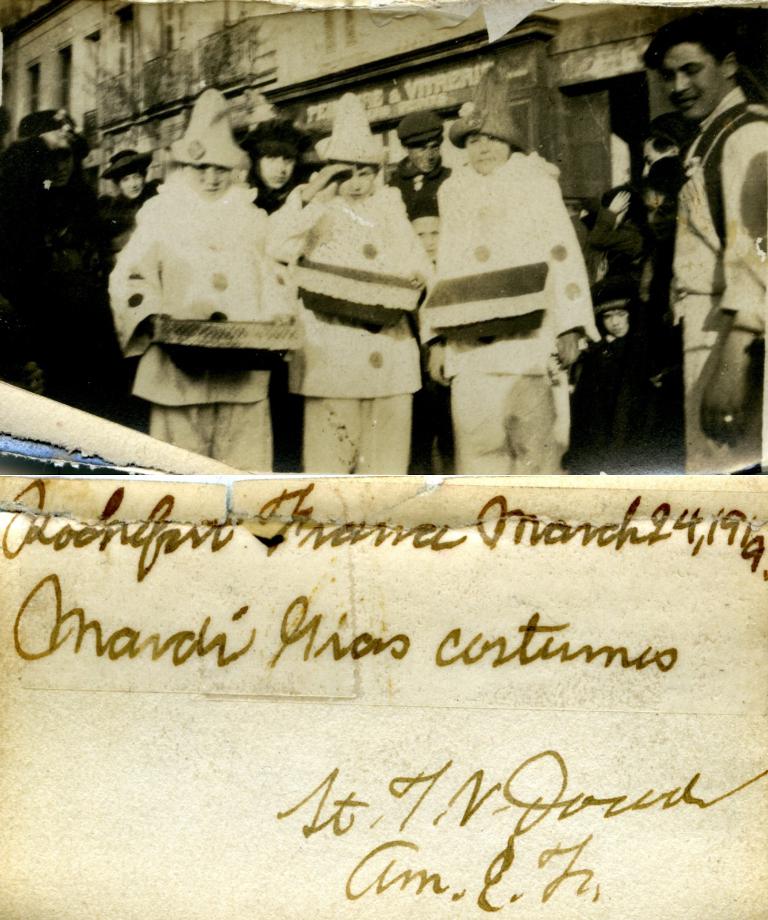 & VITRERIE
Rochefort France March 24, 1919.
Mardi Gras costumes
Lt. F. V.
Am. E. F.